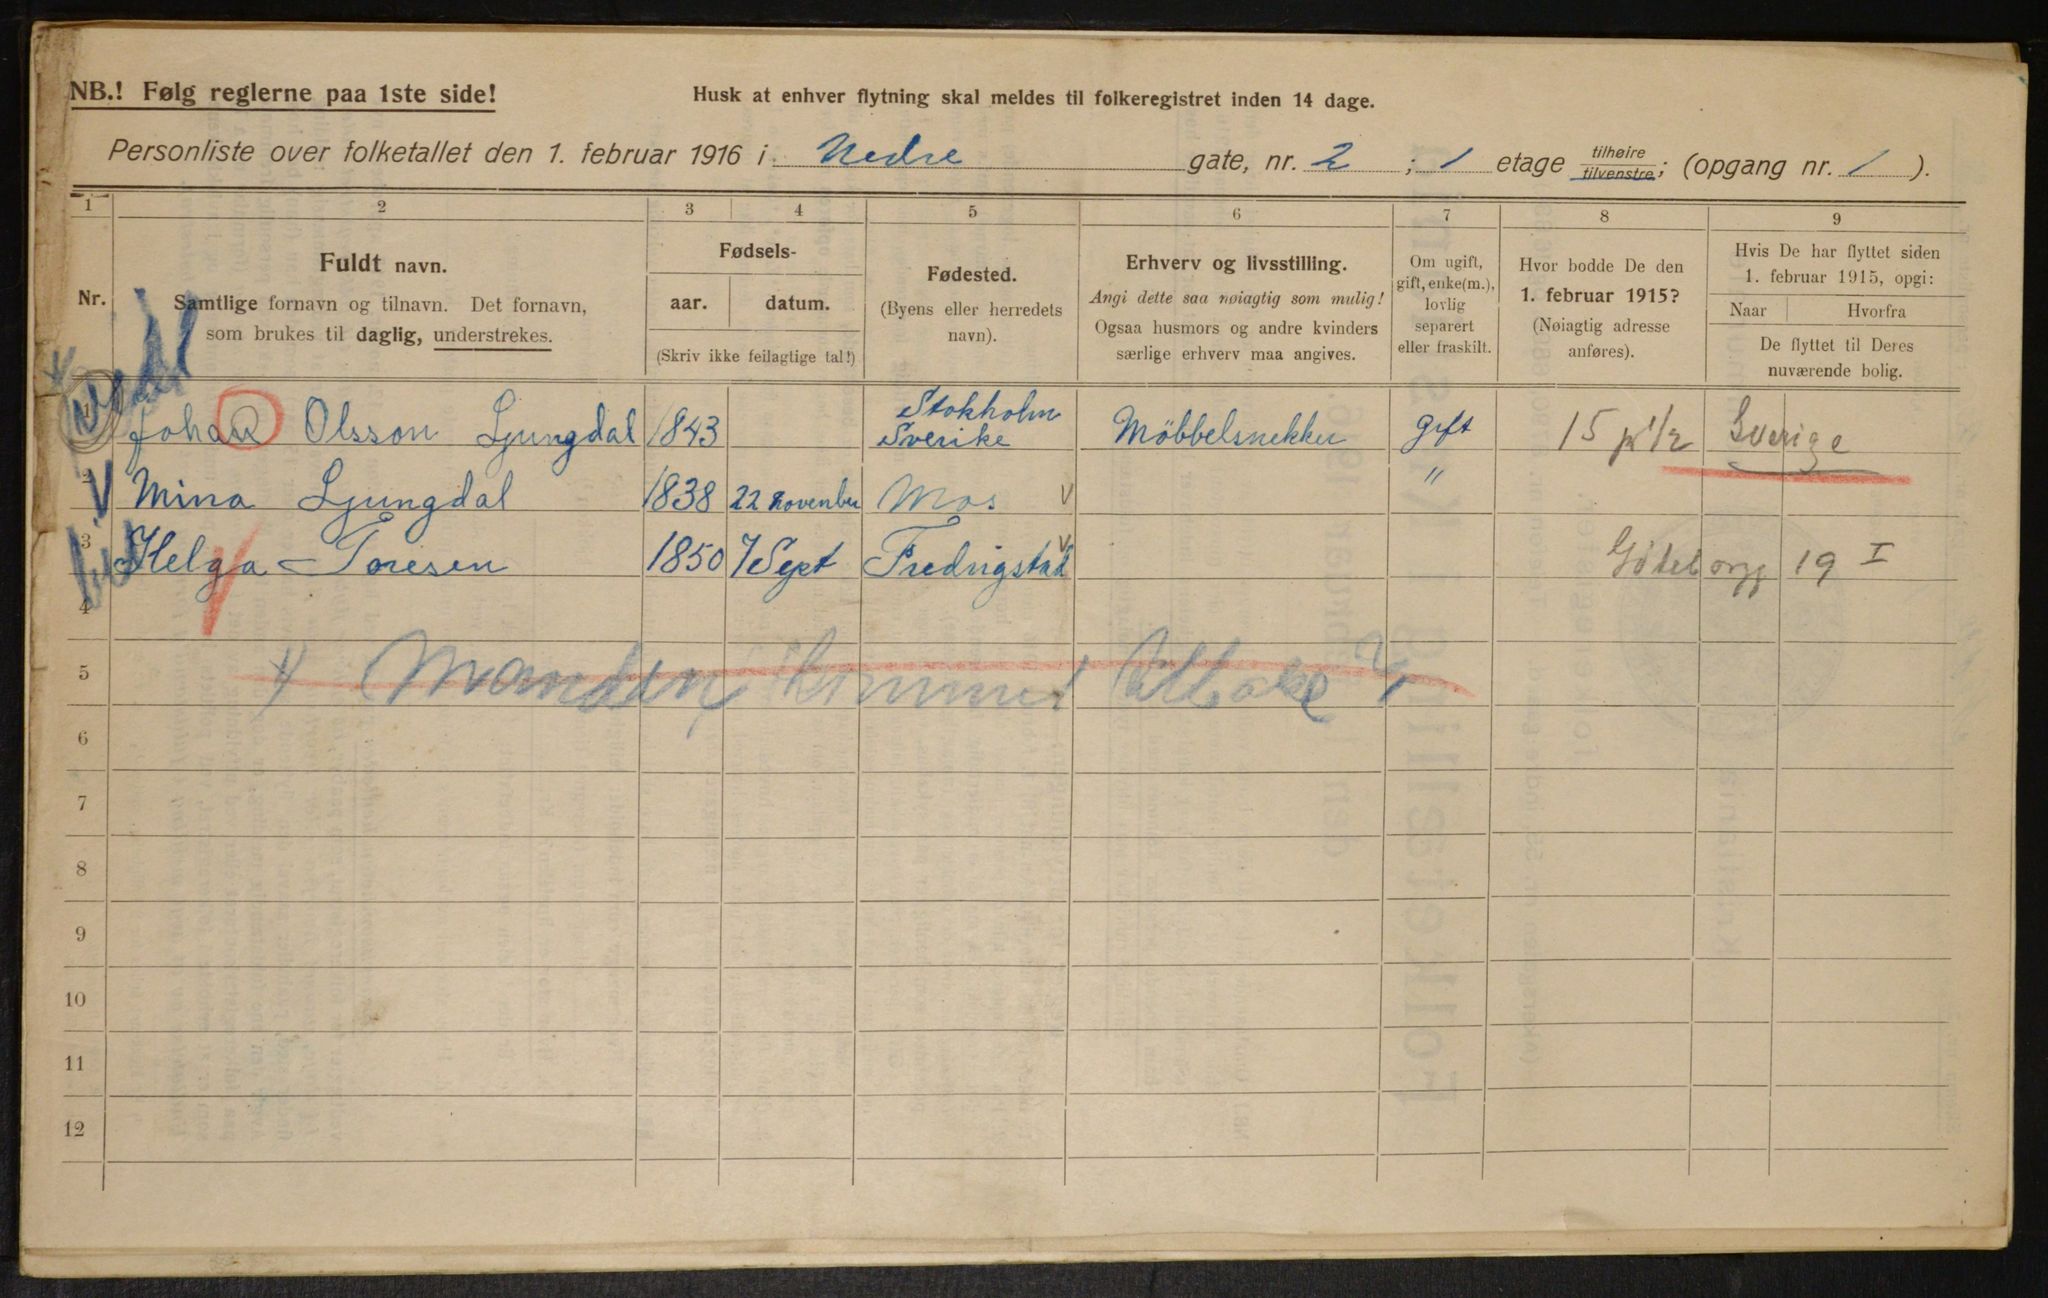 NB.! Følg reglerne paa 1ste side!
Husk at enhver flytning skal meldes til folkeregistret inden 14 dage.
Personliste over folketallet den 1. februar 1916 i Nedre gate, nr. 2 ; 1 etage tilhøire tilvenstre; (opgang nr. 1).
1 2 3 4 5 6 7 8 9
Nr.
Fuldt navn.
Samtlige fornavn og tilnavn. Det fornavn,
som brukes til daglig, understrekes.
Fødsels-
aar. datum.
(Skriv ikke feilagtige tal!)
Fødested.
(Byens eller herredets
navn).
Erhverv og livsstilling.
Angi dette saa nøiagtig som mulig!
Ogsaa husmors og andre kvinders
særlige erhverv maa angives.
Om ugift,
gift, enke(m.),
lovlig
separert
eller fraskilt.
Hvor bodde De den
1. februar 1915?
(Nøiagtig adresse
anføres).
Hvis De har flyttet siden
1. februar 1915, opgi:
Naar Hvorfra
De flyttet til Deres
nuværende bolig.
1 Johan Olsson Ljungdal 1843 Stokholm Sverike Möbbelsnekker gift 15 Sverige
2 Mina Ljungdal 1838 22 november Mos "
3 Helga Toresen 1850 7 Sept Fredrigstad Göteborg 19 I
4
5 Manden kommer tilbake
6
7
8
9
10
11
12